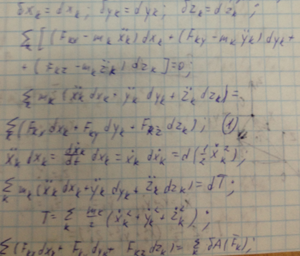 δx_k = dx_k; δy_k = dy_k; δz_k = dz_k;
Σ_k [(F_kx - m_k ẍ_k) dx_k + (F_ky - m_k ÿ_k) dy_k +
+ (F_kz - m_k z̈_k) dz_k] = 0;
Σ_k m_k (ẍ_k dx_k + ÿ_k dy_k + z̈_k dz_k) =
Σ_k (F_kx dx_k + F_ky dy_k + F_kz dz_k); (1)
ẍ_k dx_k = dẋ_k/dt dx_k = ẋ_k dẋ_k = d(1/2 ẋ_k²);
Σ_k m_k (ẍ_k dx_k + ÿ_k dy_k + z̈_k dz_k) = dT;
T = Σ_k m_k/2 (ẋ_k² + ẏ_k² + ż_k²);
Σ (F_kx dx_k + F_ky dy_k + F_kz dz_k) = Σ_k δA(F_k);